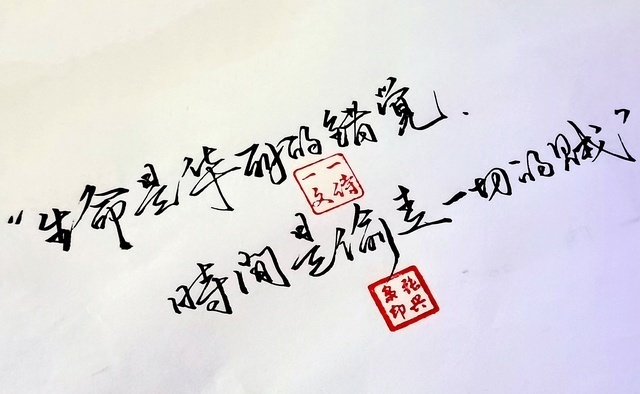 “生命是华丽的错觉.
一诗一文
時间是偷走一切的贼”
张兴
印